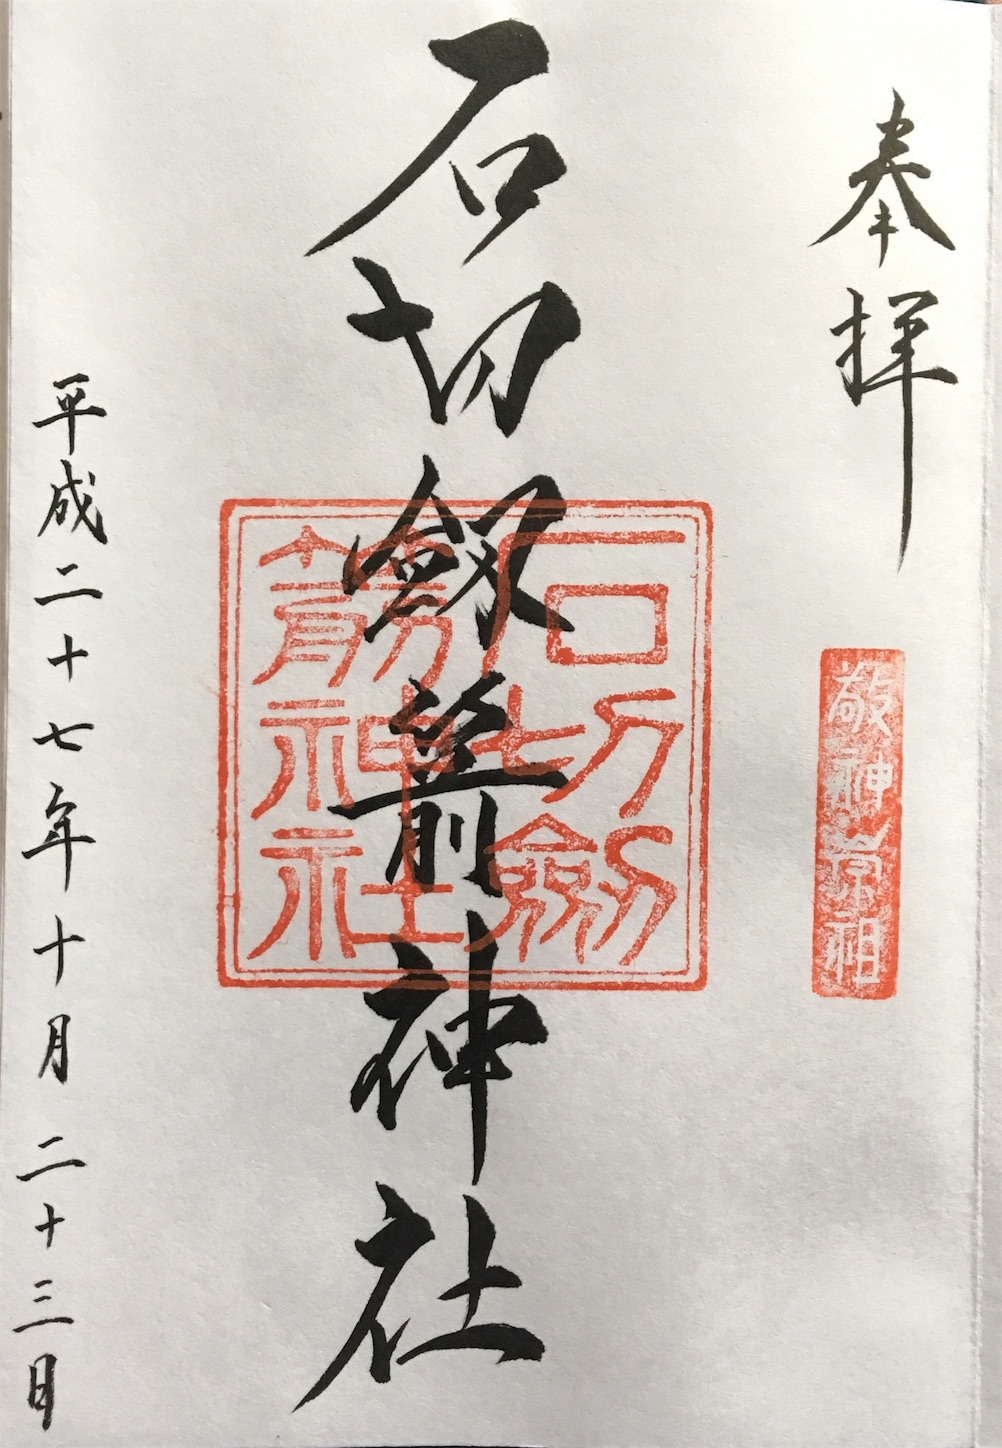 奉拝
敬神崇祖
石切劔箭神社
石切劔
箭神社
平成二十七年十月二十三日